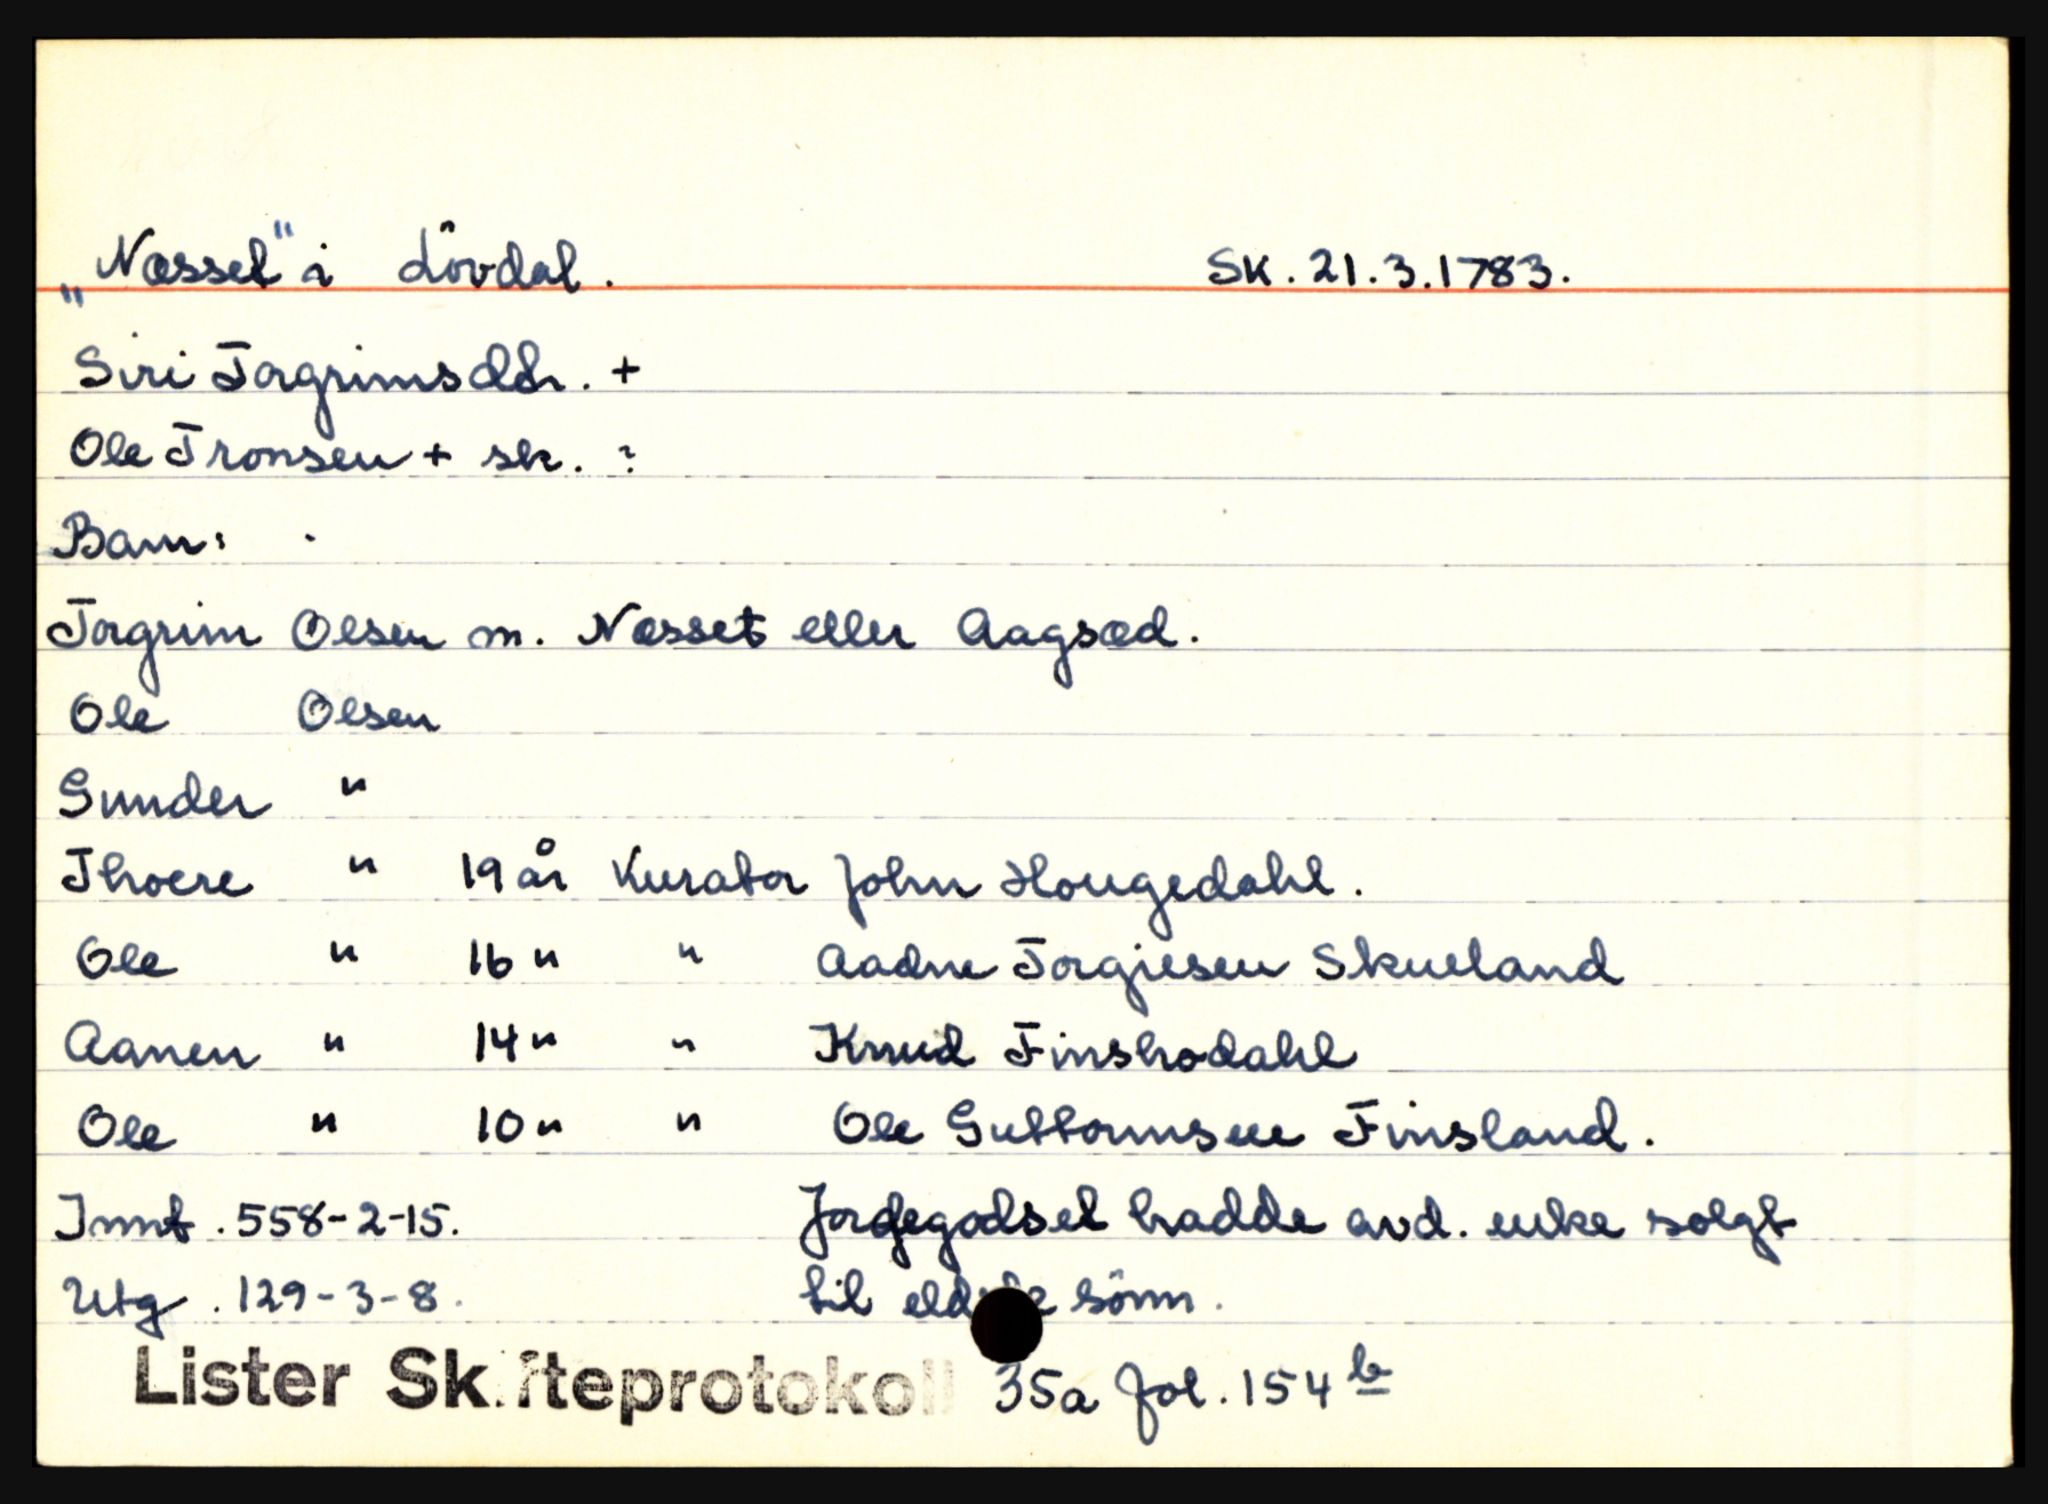 „Næsset" i Lövdal. Sk. 21.3.1783.
Siri Torgrimsdtr. +
Ole Tronsen + sk. ?
Barn:
Torgrim Olsen m. Næsset eller Aagsæd.
Ole Olsen
Gunder "
Thore " 19 år Kurator John Hougedahl.
Ole " 16 " " Aadne Torgiesen Skueland
Aanen " 14 " " Knud Finshodahl
Ole " 10 " " Ole Guttormsen Finsland.
Innt. 558-2-15. Jordegodset hadde avd. enke solgt
Utg. 129-3-8. til eldste sönn.
Lister Skifteprotokoll 35a fol. 154 b